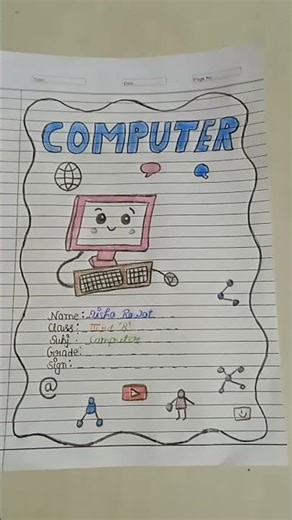 Date
Page No.
COMPUTER
Name: Risha Rawat
Class: IIIrd 'B'
Subj: Computer
Grade:
Sign:
@